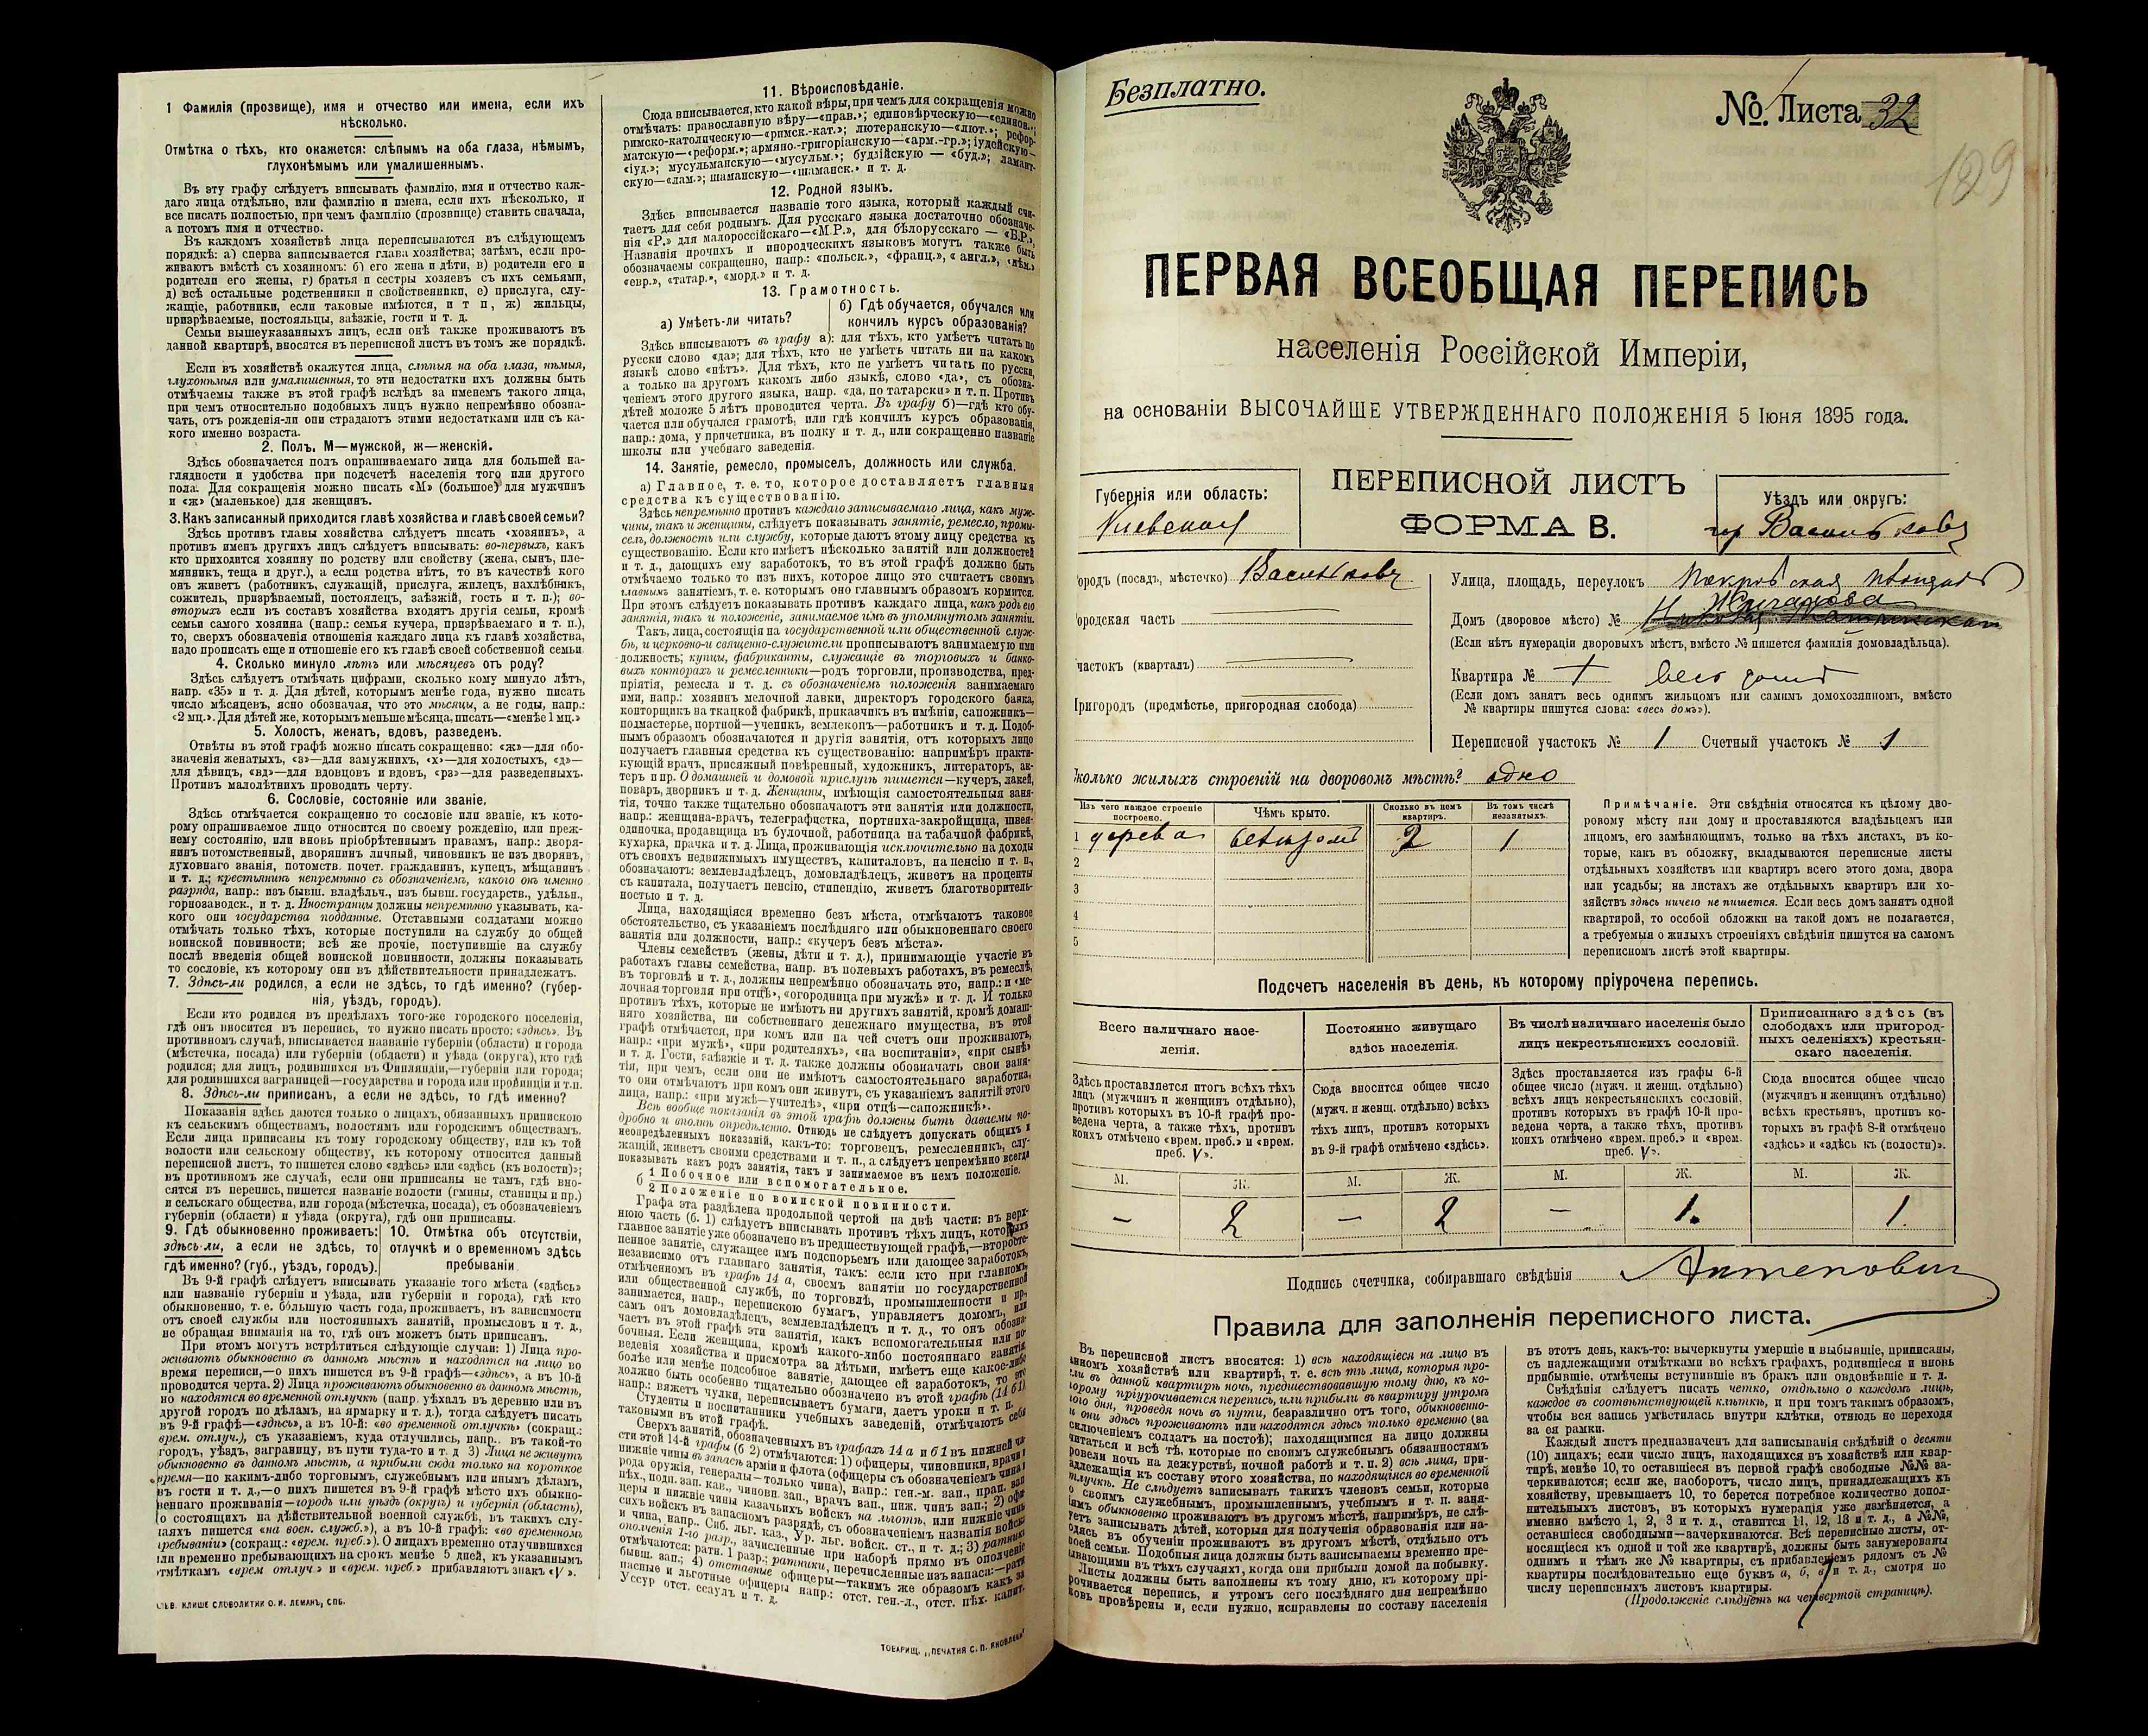 1 Фамилія (прозвище), имя и отчество или имена, если ихъ
нѣсколько.
Отмѣтка о тѣхъ, кто окажется: слѣпымъ на оба глаза, нѣмымъ,
глухонѣмымъ или умалишеннымъ.
Въ эту графу слѣдуетъ вписывать фамилію, имя и отчество каж-
даго лица отдѣльно, или фамилію и имена, если ихъ нѣсколько, и
все писать полностью, при чемъ фамилію (прозвище) ставить сначала,
а потомъ имя и отчество.
Въ каждомъ хозяйствѣ лица переписываются въ слѣдующемъ
порядкѣ: а) сперва записывается глава хозяйства; затѣмъ, если про-
живаютъ вмѣстѣ съ хозяиномъ: б) его жена и дѣти, в) родители его и
родители его жены, г) братья и сестры хозяевъ съ ихъ семьями,
д) всѣ остальные родственники и свойственники, е) прислуга, слу-
жащіе, работники, если таковые имѣются, и т п, ж) жильцы,
призрѣваемые, постояльцы, заѣзжіе, гости и т. д.
Семьи вышеуказанныхъ лицъ, если онѣ также проживаютъ въ
данной квартирѣ, вносятся въ переписной листъ въ томъ же порядкѣ.
Если въ хозяйствѣ окажутся лица, слѣпыя на оба глаза, нѣмыя,
глухонѣмыя или умалишенныя, то эти недостатки ихъ должны быть
отмѣчаемы также въ этой графѣ вслѣдъ за именемъ такого лица,
при чемъ относительно подобныхъ лицъ нужно непремѣнно обозна-
чать, отъ рожденія-ли они страдаютъ этими недостатками или съ ка-
кого именно возраста.
2. Полъ. М—мужской, ж—женскій.
Здѣсь обозначается полъ опрашиваемаго лица для большей на-
глядности и удобства при подсчетѣ населенія того или другого
пола. Для сокращенія можно писать «М» (большое) для мужчинъ
и «ж» (маленькое) для женщинъ.
3. Какъ записанный приходится главѣ хозяйства и главѣ своей семьи?
Здѣсь противъ главы хозяйства слѣдуетъ писать «хозяинъ», а
противъ именъ другихъ лицъ слѣдуетъ вписывать: во-первыхъ, какъ
кто приходится хозяину по родству или свойству (жена, сынъ, пле-
мянникъ, теща и друг.), а если родства нѣтъ, то въ качествѣ кого
онъ живетъ (работникъ, служащій, прислуга, жилецъ, нахлѣбникъ,
сожитель, призрѣваемый, постоялецъ, заѣзжій, гость и т. п.); во-
вторыхъ если въ составъ хозяйства входятъ другія семьи, кромѣ
семьи самого хозяина (напр.: семья кучера, призрѣваемаго и т. п.),
то, сверхъ обозначенія отношенія каждаго лица къ главѣ хозяйства,
надо прописать еще и отношеніе его къ главѣ своей собственной семьи.
4. Сколько минуло лѣтъ или мѣсяцевъ отъ роду?
Здѣсь слѣдуетъ отмѣчать цифрами, сколько кому минуло лѣтъ,
напр. «35» и т. д. Для дѣтей, которымъ менѣе года, нужно писать
число мѣсяцевъ, ясно обозначая, что это мѣсяцы, а не годы, напр.:
«2 мц.». Для дѣтей же, которымъ меньше мѣсяца, писать—«менѣе 1 мц.»
5. Холостъ, женатъ, вдовъ, разведенъ.
Отвѣты въ этой графѣ можно писать сокращенно: «ж»—для обо-
значенія женатыхъ, «з»—для замужнихъ, «х»—для холостыхъ, «д»—
для дѣвицъ, «вд»—для вдовцовъ и вдовъ, «рз»—для разведенныхъ.
Противъ малолѣтнихъ проводить черту.
6. Сословіе, состояніе или званіе,
Здѣсь отмѣчается сокращенно то сословіе или званіе, къ кото-
рому опрашиваемое лицо относится по своему рожденію, или преж-
нему состоянію, или вновь пріобрѣтеннымъ правамъ, напр.: дворя-
нинъ потомственный, дворянинъ личный, чиновникъ не изъ дворянъ,
духовнаго званія, потомств. почет. гражданинъ, купецъ, мѣщанинъ
и т. д.; крестьянинъ непремѣнно съ обозначеніемъ, какого онъ именно
разряда, напр.: изъ бывш. владѣльч., изъ бывш. государств., удѣльн.,
горнозаводск., и т. д. Иностранцы должны непремѣнно указывать, ка-
кого они государства подданные. Отставными солдатами можно
отмѣчать только тѣхъ, которые поступили на службу до общей
воинской повинности; всѣ же прочіе, поступившіе на службу
послѣ введенія общей воинской повинности, должны показывать
то сословіе, къ которому они въ дѣйствительности принадлежатъ.
7. Здѣсь-ли родился, а если не здѣсь, то гдѣ именно? (губер-
нія, уѣздъ, городъ).
Если кто родился въ предѣлахъ того-же городского поселенія,
гдѣ онъ вносится въ перепись, то нужно писать просто: «здѣсь». Въ
противномъ случаѣ, вписывается названіе губерніи (области) и города
(мѣстечка, посада) или губерніи (области) и уѣзда (округа), кто гдѣ
родился; для лицъ, родившихся въ Финляндіи,—губерніи или города;
для родившихся заграницей—государства и города или провинціи и т.п.
8. Здѣсь-ли приписанъ, а если не здѣсь, то гдѣ именно?
Показанія здѣсь даются только о лицахъ, обязанныхъ припискою
къ сельскимъ обществамъ, волостямъ или городскимъ обществамъ.
Если лица приписаны къ тому городскому обществу, или къ той
волости или сельскому обществу, къ которому относится данный
переписной листъ, то пишется слово «здѣсь» или «здѣсь (къ волости)»;
въ противномъ же случаѣ, если они приписаны не тамъ, гдѣ вно-
сятся въ перепись, пишется названіе волости (гмины, станицы и пр.)
и сельскаго общества, или города (мѣстечка, посада), съ обозначеніемъ
губерніи (области) и уѣзда (округа), гдѣ они приписаны.
9. Гдѣ обыкновенно проживаетъ:
здѣсь-ли, а если не здѣсь, то
гдѣ именно? (губ., уѣздъ, городъ).
10. Отмѣтка объ отсутствіи,
отлучкѣ и о временномъ здѣсь
пребываніи
Въ 9-й графѣ слѣдуетъ вписывать указаніе того мѣста («здѣсь»
или названіе губерніи и уѣзда, или губерніи и города), гдѣ кто
обыкновенно, т. е. бо́льшую часть года, проживаетъ, въ зависимости
отъ своей службы или постоянныхъ занятій, промысловъ и т. д.,
не обращая вниманія на то, гдѣ онъ можетъ быть приписанъ.
При этомъ могутъ встрѣтиться слѣдующіе случаи: 1) Лица про-
живаютъ обыкновенно въ данномъ мѣстѣ и находятся на лицо во
время переписи,—о нихъ пишется въ 9-й графѣ—«здѣсь», а въ 10-й
проводится черта. 2) Лица проживаютъ обыкновенно въ данномъ мѣстѣ,
но находятся во временной отлучкѣ (напр. уѣхалъ въ деревню или въ
другой городъ по дѣламъ, на ярмарку и т. д.), тогда слѣдуетъ писать
въ 9-й графѣ—«здѣсь», а въ 10-й: «во временной отлучкѣ» (сокращ.:
врем. отлуч.), съ указаніемъ, куда отлучились, напр.. въ такой-то
городъ, уѣздъ, заграницу, въ пути туда-то и т. д 3) Лица не живутъ
обыкновенно въ данномъ мѣстѣ, а прибыли сюда только на короткое
время—по какимъ-либо торговымъ, служебнымъ или инымъ дѣламъ,
въ гости и т. д.,—о нихъ пишется въ 9-й графѣ мѣсто ихъ обыкно-
веннаго проживанія—городъ или уѣздъ (округъ) и губернія (область),
(о состоящихъ на дѣйствительной военной службѣ, въ такихъ слу-
чаяхъ пишется «на воен. служб.»), а въ 10-й графѣ: «во временномъ
пребываніи» (сокращ.: «врем. преб.»). О лицахъ временно отлучившихся
или временно пребывающихъ на срокъ менѣе 5 дней, къ указаннымъ
отмѣткамъ «врем отлуч.» и «врем. преб.» прибавляютъ знакъ «V».
КЛИШЕ СЛОВОЛИТНИ О. И. ЛЕМАНЪ, СПБ.
11. Вѣроисповѣданіе.
Сюда вписывается, кто какой вѣры, при чемъ для сокращенія можно
отмѣчать: православную вѣру—«прав.»; единовѣрческую—«единов.»;
римско-католическую—«римск.-кат.»; лютеранскую—«лют.»; рефор-
матскую—«реформ.»; армяно.-григоріанскую—«арм.-гр.»; іудейскую—
«іуд.»; мусульманскую—«мусульм.»; буддійскую — «буд.»; ламаит-
скую—«лам.»; шаманскую—«шаманск.» и т. д.
12. Родной языкъ.
Здѣсь вписывается названіе того языка, который каждый счи-
таетъ для себя роднымъ. Для русскаго языка достаточно обозначе-
нія «Р.» для малороссійскаго—«М.Р.», для бѣлорусскаго — «Б.Р.»,
Названія прочихъ и инородческихъ языковъ могутъ также быть
обозначаемы сокращенно, напр.: «польск.», «франц.», «англ.», «нѣм.»
«евр.», «татар.», «морд.» и т. д.
13. Грамотность.
а) Умѣетъ-ли читать?
б) Гдѣ обучается, обучался или
кончилъ курсъ образованія?
Здѣсь вписываютъ въ графу а): для тѣхъ, кто умѣетъ читать по
русски слово «да»; для тѣхъ, кто не умѣетъ читать ни на какомъ
языкѣ слово «нѣтъ». Для тѣхъ, кто не умѣетъ читать по русски,
а только на другомъ какомъ либо языкѣ, слово «да», съ обозна-
ченіемъ этого другого языка, напр. «да, по татарски» и т. п. Противъ
дѣтей моложе 5 лѣтъ проводится черта. Въ графу б)—гдѣ кто обу-
чается или обучался грамотѣ, или гдѣ кончилъ курсъ образованія,
напр.: дома, у причетника, въ полку и т. д., или сокращенно названіе
школы или учебнаго заведенія.
14. Занятіе, ремесло, промыселъ, должность или служба.
а) Главное, т. е. то, которое доставляетъ главныя
средства къ существованію.
Здѣсь непремѣнно противъ каждаго записываемаго лица, какъ муж-
чины, такъ и женщины, слѣдуетъ показывать занятіе, ремесло, промы-
селъ, должность или службу, которые даютъ этому лицу средства къ
существованію. Если кто имѣетъ нѣсколько занятій или должностей
и т. д., дающихъ ему заработокъ, то въ этой графѣ должно быть
отмѣчаемо только то изъ нихъ, которое лицо это считаетъ своимъ
главнымъ занятіемъ, т. е. которымъ оно главнымъ образомъ кормится.
При этомъ слѣдуетъ показывать противъ каждаго лица, какъ родъ его
занятія, такъ и положеніе, занимаемое имъ въ упомянутомъ занятіи.
Такъ, лица, состоящія на государственной или общественной служ-
бѣ, и церковно-и священно-служители прописываютъ занимаемую ими
должность; купцы, фабриканты, служащіе въ торговыхъ и банко-
выхъ конторахъ и ремесленники—родъ торговли, производства, пред-
пріятія, ремесла и т. д. съ обозначеніемъ положенія занимаемаго
ими, напр.: хозяинъ мелочной лавки, директоръ городского банка,
конторщикъ на ткацкой фабрикѣ, приказчикъ въ имѣніи, сапожникъ—
подмастерье, портной—ученикъ, землекопъ—работникъ и т. д. Подоб-
нымъ образомъ обозначаются и другія занятія, отъ которыхъ лицо
получаетъ главныя средства къ существованію: напримѣръ практи-
кующій врачъ, присяжный повѣренный, художникъ, литераторъ, ак-
теръ и пр. О домашней и домовой прислугѣ пишется—кучеръ, лакей,
поваръ, дворникъ и т. д. Женщины, имѣющія самостоятельныя заня-
тія, точно также тщательно обозначаютъ эти занятія или должности,
напр.: женщина-врачъ, телеграфистка, портниха-закройщица, швея-
одиночка, продавщица въ булочной, работница на табачной фабрикѣ,
кухарка, прачка и т. д. Лица, проживающія исключительно на доходы
отъ своихъ недвижимыхъ имуществъ, капиталовъ, на пенсію и т. п.,
обозначаютъ: землевладѣлецъ, домовладѣлецъ, живетъ на проценты
съ капитала, получаетъ пенсію, стипендію, живетъ благотворитель-
ностью и т. д.
Лица, находящіяся временно безъ мѣста, отмѣчаютъ таковое
обстоятельство, съ указаніемъ послѣдняго или обыкновеннаго своего
занятія или должности, напр.: «кучеръ безъ мѣста».
Члены семействъ (жены, дѣти и т. д.), принимающіе участіе въ
работахъ главы семейства, напр. въ полевыхъ работахъ, въ ремеслѣ,
въ торговлѣ и т. д., должны непремѣнно обозначать это, напр.: и «ме-
лочная торговля при отцѣ», «огородница при мужѣ» и т. д. И только
противъ тѣхъ, которые не имѣютъ ни другихъ занятій, кромѣ домаш-
няго хозяйства, ни собственнаго денежнаго имущества, въ этой
графѣ отмѣчается, при комъ или на чей счетъ они проживаютъ,
напр.: «при мужѣ», «при родителяхъ», «на воспитаніи», «при сынѣ»
и т. д. Гости, заѣзжіе и т. д. также должны обозначать свои заня-
тія, при чемъ, если они не имѣютъ самостоятельнаго заработка,
то они отмѣчаютъ при комъ они живутъ, съ указаніемъ занятій этого
лица, напр.: «при мужѣ—учителѣ», «при отцѣ—сапожникѣ».
Всѣ вообще показанія въ этой графѣ должны быть даваемы по-
дробно и вполнѣ опредѣленно. Отнюдь не слѣдуетъ допускать общихъ и
неопредѣленныхъ показаній, какъ-то: торговецъ, ремесленникъ, слу-
жащій, живетъ своими средствами и т. п., а слѣдуетъ непремѣнно всегда
показывать какъ родъ занятія, такъ и занимаемое въ немъ положеніе.
б 1 Побочное или вспомогательное.
2 Положеніе по воинской повинности.
Графа эта раздѣлена продольной чертой на двѣ части: въ верх-
нюю часть (б. 1) слѣдуетъ вписывать противъ тѣхъ лицъ, которыхъ
главное занятіе уже обозначено въ предшествующей графѣ,—второсте-
пенное занятіе, служащее имъ подспорьемъ или дающее заработокъ,
независимо отъ главнаго занятія, такъ: если кто при главномъ,
отмѣченномъ въ графѣ 14 а, своемъ занятіи по государственной
или общественной службѣ, по торговлѣ, промышленности и пр,
занимается, напр., перепискою бумагъ, управляетъ домомъ, или
самъ онъ домовладѣлецъ, землевладѣлецъ и т. д., то онъ обозна-
чаетъ въ этой графѣ эти занятія, какъ вспомогательныя или по-
бочныя. Если женщина, кромѣ какого-либо постояннаго занятія
веденія хозяйства и присмотра за дѣтьми, имѣетъ еще какое-либо
болѣе или менѣе подсобное занятіе, дающее ей заработокъ, то это
должно быть особенно тщательно обозначено въ этой графѣ (14 б 1),
напр.: вяжетъ чулки, переписываетъ бумаги, даетъ уроки и т. п.
Студенты и воспитанники учебныхъ заведеній, отмѣчаютъ себя
таковыми въ этой графѣ.
Сверхъ занятій, обозначенныхъ въ графахъ 14 а и б 1 въ нижней ча-
сти этой 14-й графы (б 2) отмѣчаются: 1) офицеры, чиновники, врачи и
нижніе чины въ запасѣ арміи и флота (офицеры съ обозначеніемъ чина и
рода оружія, генералы—только чина), напр.: ген.-м. зап., прап. зап.
пѣх., подп. зап. кав., чиновн. зап., врачъ зап., ниж. чинъ зап.; 2) офи-
церы и нижніе чины казачьихъ войскъ на льготѣ, или нижніе чины
сихъ войскъ въ запасномъ разрядѣ, съ обозначеніемъ названія войска
и чина, напр.. Спб. льг. каз., Ур. льг. войск. ст., и т. д.; 3) ратники
ополченія 1-го разр., зачисленные при наборѣ прямо въ ополченіе
отмѣчаются: ратн. 1 разр.; ратники, перечисленные изъ запаса:—ратн.
бывш. зап.; 4) отставные офицеры—такимъ же образомъ какъ за-
пасные и льготные офицеры напр.: отст. ген.-л., отст. пѣх. капит.
Уссур отст. есаулъ и т. д.
ТОВАРИЩ. „ПЕЧАТНЯ С. П. ЯКОВЛЕВА"
Безплатно.
№ Листа 32
129
ПЕРВАЯ ВСЕОБЩАЯ ПЕРЕПИСЬ
населенія Россійской Имперіи,
на основаніи ВЫСОЧАЙШЕ УТВЕРЖДЕННАГО ПОЛОЖЕНІЯ 5 Іюня 1895 года.
Губернія или область:
Кіевская
ПЕРЕПИСНОЙ ЛИСТЪ
ФОРМА В.
Уѣздъ или округъ:
гор Васильковъ
ородъ (посадъ, мѣстечко) Васильковъ
ородская часть
частокъ (кварталъ)
Пригородъ (предмѣстье, пригородная слобода)
Улица, площадь, переулокъ Покровская площадь
Домъ (дворовое мѣсто) №
(Если нѣтъ нумераціи дворовыхъ мѣстъ, вмѣсто № пишется фамилія домовладѣльца).
Квартира № весь домъ
(Если домъ занятъ весь однимъ жильцомъ или самимъ домохозяиномъ, вмѣсто
№ квартиры пишутся слова: «весь домъ»).
Переписной участокъ № 1 Счетный участокъ № 1
колько жилыхъ строеній на дворовомъ мѣстѣ? одно
Изъ чего каждое строеніе
построено.
Чѣмъ крыто.
Сколько въ немъ
квартиръ.
Въ томъ числѣ
незанятыхъ.
1 дерева 2 1
2
3
4
5
Примѣчаніе. Эти свѣдѣнія относятся къ цѣлому дво-
ровому мѣсту или дому и проставляются владѣльцемъ или
лицомъ, его замѣняющимъ, только на тѣхъ листахъ, въ ко-
торые, какъ въ обложку, вкладываются переписные листы
отдѣльныхъ хозяйствъ или квартиръ всего этого дома, двора
или усадьбы; на листахъ же отдѣльныхъ квартиръ или хо-
зяйствъ здѣсь ничего не пишется. Если весь домъ занятъ одной
квартирой, то особой обложки на такой домъ не полагается,
а требуемыя о жилыхъ строеніяхъ свѣдѣнія пишутся на самомъ
переписномъ листѣ этой квартиры.
Подсчетъ населенія въ день, къ которому пріурочена перепись.
Всего наличнаго насе-
ленія.
Постоянно живущаго
здѣсь населенія.
Въ числѣ наличнаго населенія было
лицъ некрестьянскихъ сословій.
Приписаннаго здѣсь (въ
слободахъ или пригород-
ныхъ селеніяхъ) крестьян-
скаго населенія.
Здѣсь проставляется итогъ всѣхъ тѣхъ
лицъ (мужчинъ и женщинъ отдѣльно),
противъ которыхъ въ 10-й графѣ про-
ведена черта, а также тѣхъ, противъ
коихъ отмѣчено «врем. преб.» и «врем.
преб. V».
Сюда вносится общее число
(мужч. и женщ. отдѣльно) всѣхъ
тѣхъ лицъ, противъ которыхъ
въ 9-й графѣ отмѣчено «здѣсь».
Здѣсь проставляется изъ графы 6-й
общее число (мужч. и женщ. отдѣльно)
всѣхъ лицъ некрестьянскихъ сословій,
противъ которыхъ въ графѣ 10-й про-
ведена черта, а также тѣхъ, противъ
коихъ отмѣчено «врем. преб.» и «врем.
преб. V».
Сюда вносится общее число
(мужчинъ и женщинъ отдѣльно)
всѣхъ крестьянъ, противъ ко-
торыхъ въ графѣ 8-й отмѣчено
«здѣсь» и «здѣсь къ (волости)».
М. Ж. М. Ж. М. Ж. М. Ж.
— 2 — 2 — 1. 1.
Подпись счетчика, собиравшаго свѣдѣнія Антепович
Правила для заполненія переписного листа.
Въ переписной листъ вносятся: 1) всѣ находящіеся на лицо въ
нномъ хозяйствѣ или квартирѣ, т. е. всѣ тѣ лица, которыя про-
ли въ данной квартирѣ ночь, предшествовавшую тому дню, къ ко-
орому пріурочивается перепись, или прибыли въ квартиру утромъ
ого дня, проведя ночь въ пути, безразлично отъ того, обыкновенно-
и они здѣсь проживаютъ или находятся здѣсь только временно (за
сключеніемъ солдатъ на постоѣ); находящимися на лицо должны
читаться и всѣ тѣ, которые по своимъ служебнымъ обязанностямъ
ровели ночь на дежурствѣ, ночной работѣ и т. п. 2) всѣ лица, при-
адлежащія къ составу этого хозяйства, но находящіяся во временной
тлучкѣ. Не слѣдуетъ записывать такихъ членовъ семьи, которые
о своимъ служебнымъ, промышленнымъ, учебнымъ и т. п. заня-
іямъ обыкновенно проживаютъ въ другомъ мѣстѣ, напримѣръ, не слѣ-
уетъ записывать дѣтей, которыя для полученія образованія или на-
одясь въ обученіи проживаютъ въ другомъ мѣстѣ, отдѣльно отъ
воей семьи. Подобныя лица должны быть записываемы временно пре-
ывающими въ тѣхъ случаяхъ, когда они прибыли домой на побывку.
Листы должны быть заполнены къ тому дню, къ которому прі-
рочивается перепись, и утромъ сего послѣдняго дня непремѣнно
новь провѣрены и, если нужно, исправлены по составу населенія
въ этотъ день, какъ-то: вычеркнуты умершіе и выбывшіе, приписаны,
съ надлежащими отмѣтками во всѣхъ графахъ, родившіеся и вновь
прибывшіе, отмѣчены вступившіе въ бракъ или овдовѣвшіе и т. д.
Свѣдѣнія слѣдуетъ писать четко, отдѣльно о каждомъ лицѣ,
каждое въ соотвѣтствующей клѣткѣ, и при томъ такимъ образомъ,
чтобы вся запись умѣстилась внутри клѣтки, отнюдь не переходя
за ея рамки.
Каждый листъ предназначенъ для записыванія свѣдѣній о десяти
(10) лицахъ; если число лицъ, находящихся въ хозяйствѣ или квар-
тирѣ, менѣе 10, то оставшіеся въ первой графѣ свободные №№ за-
черкиваются; если же, наоборотъ, число лицъ, принадлежащихъ къ
хозяйству, превышаетъ 10, то берется потребное количество допол-
нительныхъ листовъ, въ которыхъ нумерація уже измѣняется, а
именно вмѣсто 1, 2, 3 и т. д., ставится 11, 12, 13 и т. д., а №№,
оставшіеся свободными—зачеркиваются. Всѣ переписные листы, от-
носящіеся къ одной и той же квартирѣ, должны быть занумерованы
однимъ и тѣмъ же № квартиры, съ прибавленіемъ рядомъ съ №
квартиры послѣдовательно еще буквъ а, б, в и т. д., смотря по
числу переписныхъ листовъ квартиры.
(Продолженіе слѣдуетъ на четвертой страницѣ).